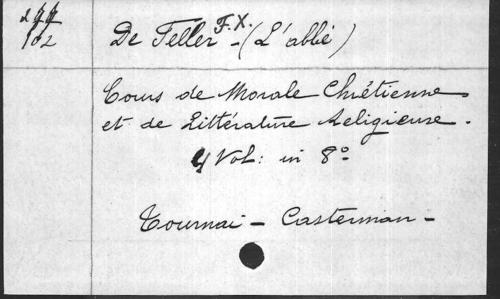 277 De Feller F.X. - (L'abbé)
102
Cours de Morale Chrétienne
et de Littérature Religieuse.
4 Vol: in 8°
Tournai - Casterman -